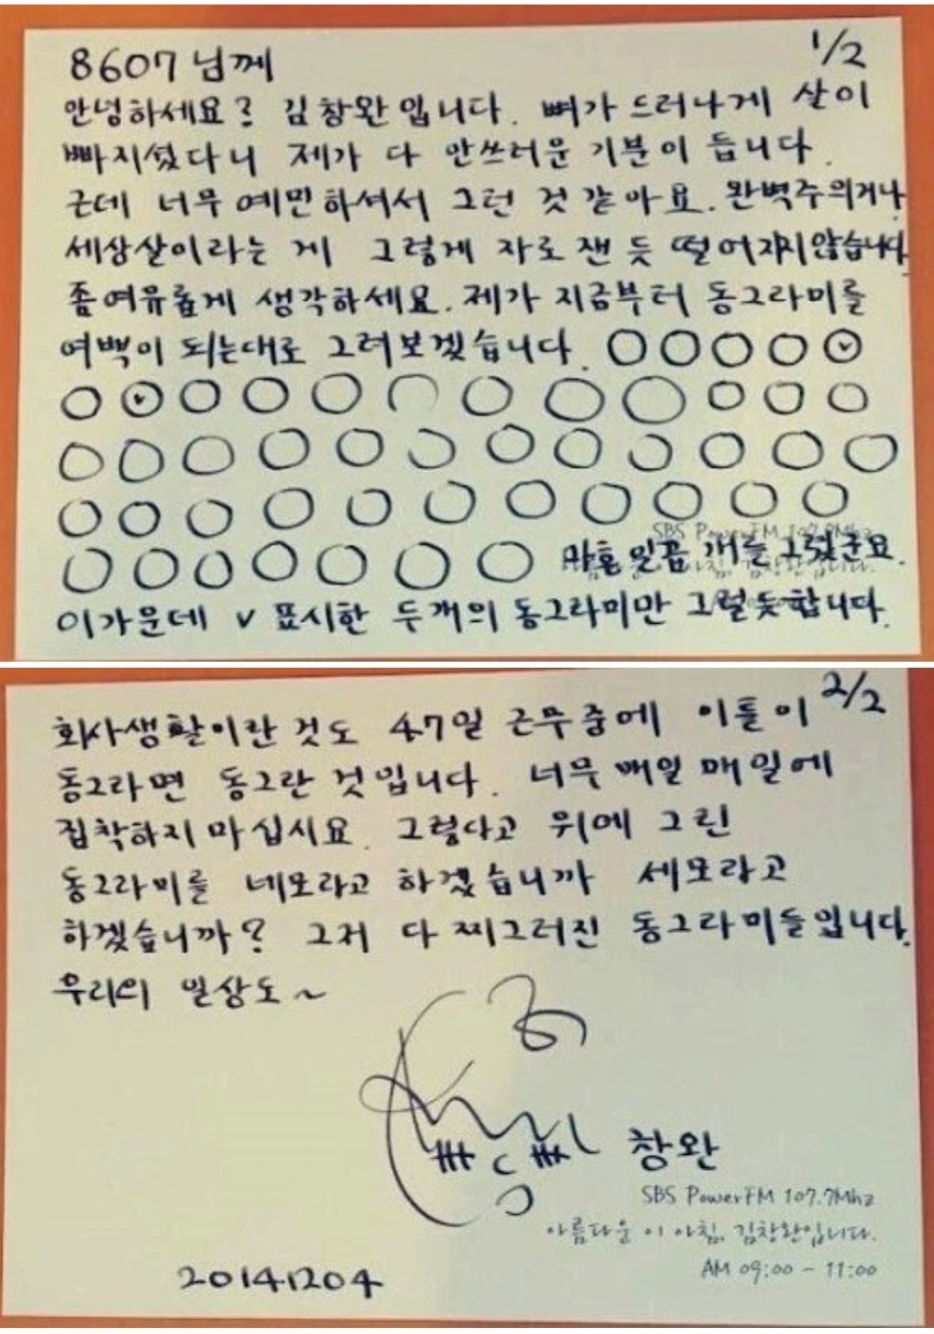 8607님께
1/2
안녕하세요? 김창완입니다. 뼈가 드러나게 살이
빠지셨다니 제가 다 안쓰러운 기분이 듭니다.
근데 너무 예민하셔서 그런 것 같아요. 완벽주의거나
세상살이라는 게 그렇게 자로 잰 듯 떨어지지 않습니다
좀 여유롭게 생각하세요. 제가 지금부터 동그라미를
여백이 되는대로 그려보겠습니다.
SBS PowerFM 107.7Mhz
마흔 일곱 개를 그렸군요.
이가운데 v 표시한 두개의 동그라미만 그럴듯합니다.
2/2
회사생활이란 것도 47일 근무중에 이틀이
동그라면 동그란 것입니다. 너무 매일 매일에
집착하지 마십시요. 그렇다고 위에 그린
동그라미를 네모라고 하겠습니까 세모라고
하겠습니까? 그저 다 찌그러진 동그라미들입니다.
우리의 일상도~
창완
SBS PowerFM 107.7Mhz
아름다운 이 아침, 김창완입니다.
AM 09:00 - 11:00
20141204